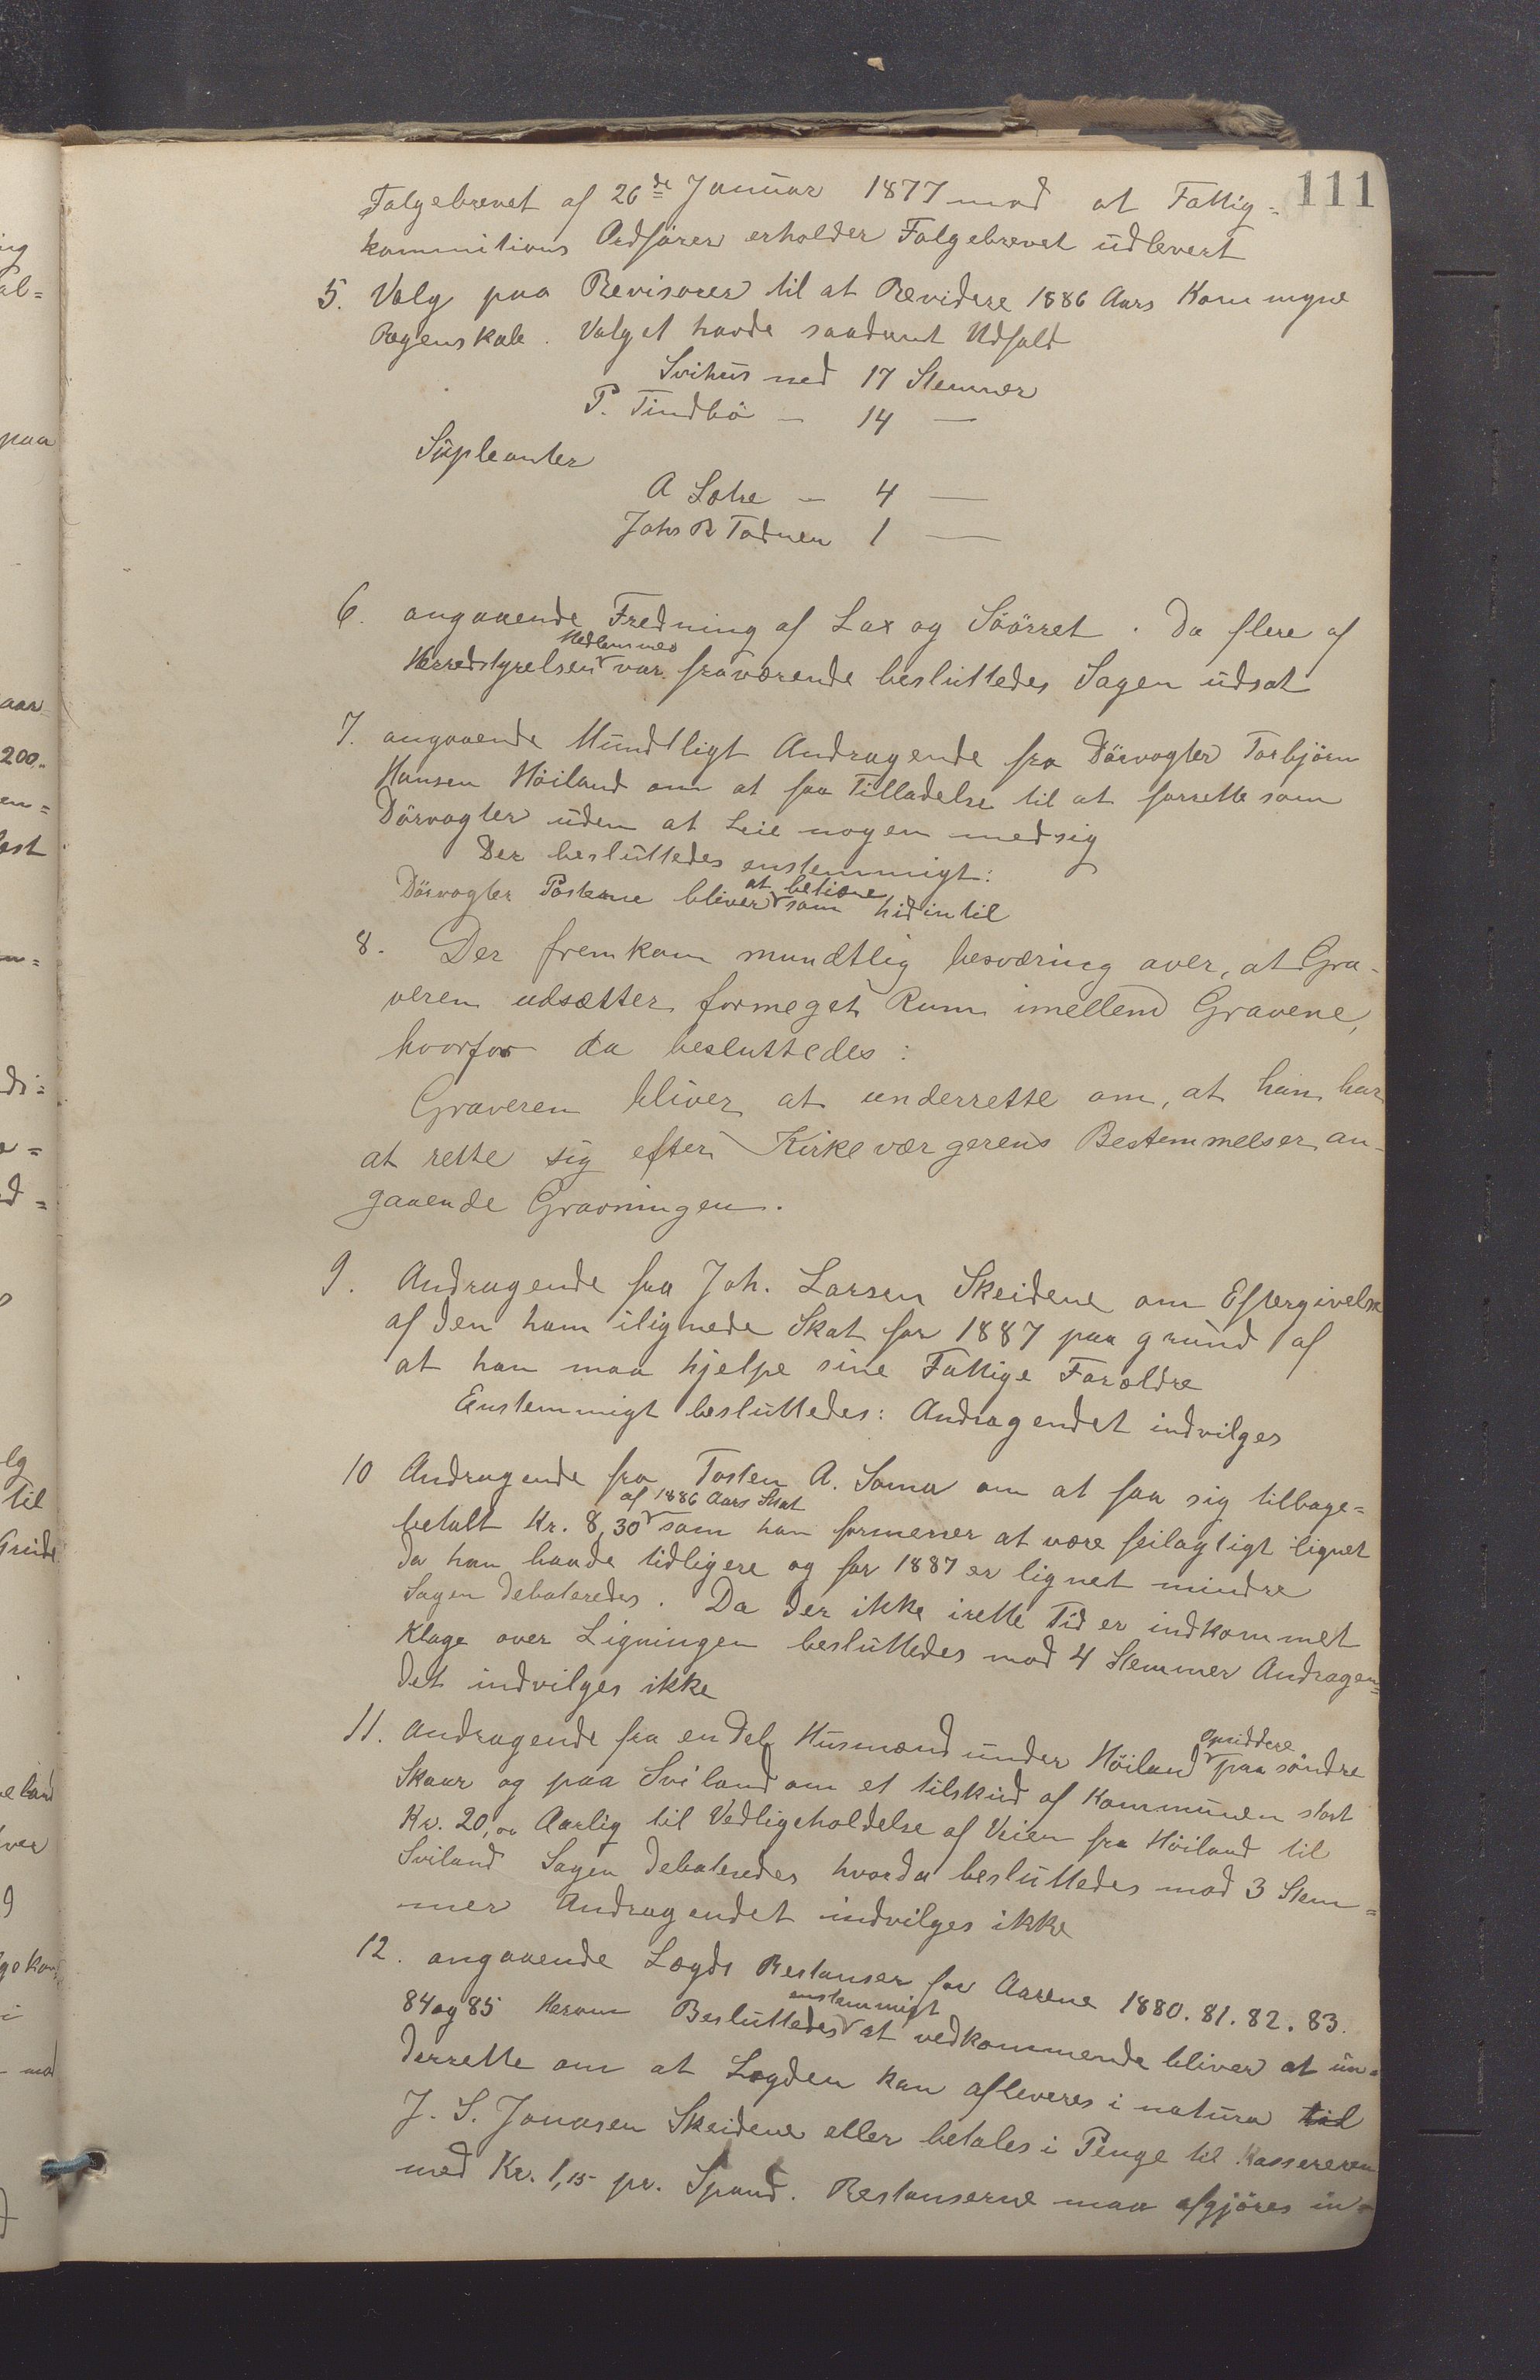 111
Folgebrevet af 26de Januar 1877 mod at Fattig=
kommitions Ordförer erholder Folgebrevet udlevert
5. Valg paa Revisorer til at Revidere 1886 Aars Kommune
Regenskab. Valget havde saadant Udfald
Svihus med 17 Stemmer
P. Tindbö — 14 —
Supleanter
A Lohe — 4 —
Johs R Todnem 1 —
6. angaaende Fredning af Lax og Söörret. Da flere af
Herredstyrelsens Medlemmer var fraværende besluttedes Sagen udsat
7. angaaende Mundtligt Andragende fra Dörvogter Torbjörn
Hansen Höiland om at faa Tilladelse til at forrette som
Dörvogter uden at Leie nogen med sig
Der besluttedes enstemmigt:
Dörvogter Posterne bliver at betiene som hidintil
8. Der fremkom mundtlig besværing over, at Gra-
veren udsætter formeget Rum imellem Gravene,
hvorfor da besluttedes:
Graveren bliver at underrette om, at han har
at rette sig efter Kirkeværgerens Bestemmelser an-
gaaende Gravningen.
9. Andragende fra Joh. Larsen Skeidene om Eftergivelse
af den ham ilignede Skat for 1887 paa grund af
at han maa hjelpe sine Fattige Forældre
Enstemmigt besluttedes: Andragendet indvilges
10 Andragende fra Tosten A. Soma om at faa sig tilbage=
betalt Kr. 8,30 af 1886 Aars Skat som han formener at være feilagtigt lignet
da han baade tidligere og for 1887 er lignet mindre
Sagen debateredes. Da der ikke irette Tid er indkommet
Klage over Ligningen besluttedes mod 4 Stemmer Andragen=
det indvilges ikke
11. Andragende fra en Del Husmænd under Höiland opsiddere paa söndre
Skaar og paa Sviland om et tilskud af Kommunen stort
Kr. 20,00 Aarlig til Vedligeholdelse af Veien fra Höiland til
Sviland Sagen debateredes hvorda besluttedes mod 3 Stem=
mer Andragendet indvilges ikke
12. angaaende Lægds Restanser for Aarene 1880. 81. 82. 83.
84 og 85 Herom Besluttedes enstemmigt at vedkommende bliver at un=
derrette om at Lægden kan afleveres i natura til
J. S. Jonasen Skeidene eller betales i Penge til Kassereren
med Kr. 1,15 pr. Spand. Restanserne maa afgjöres in=